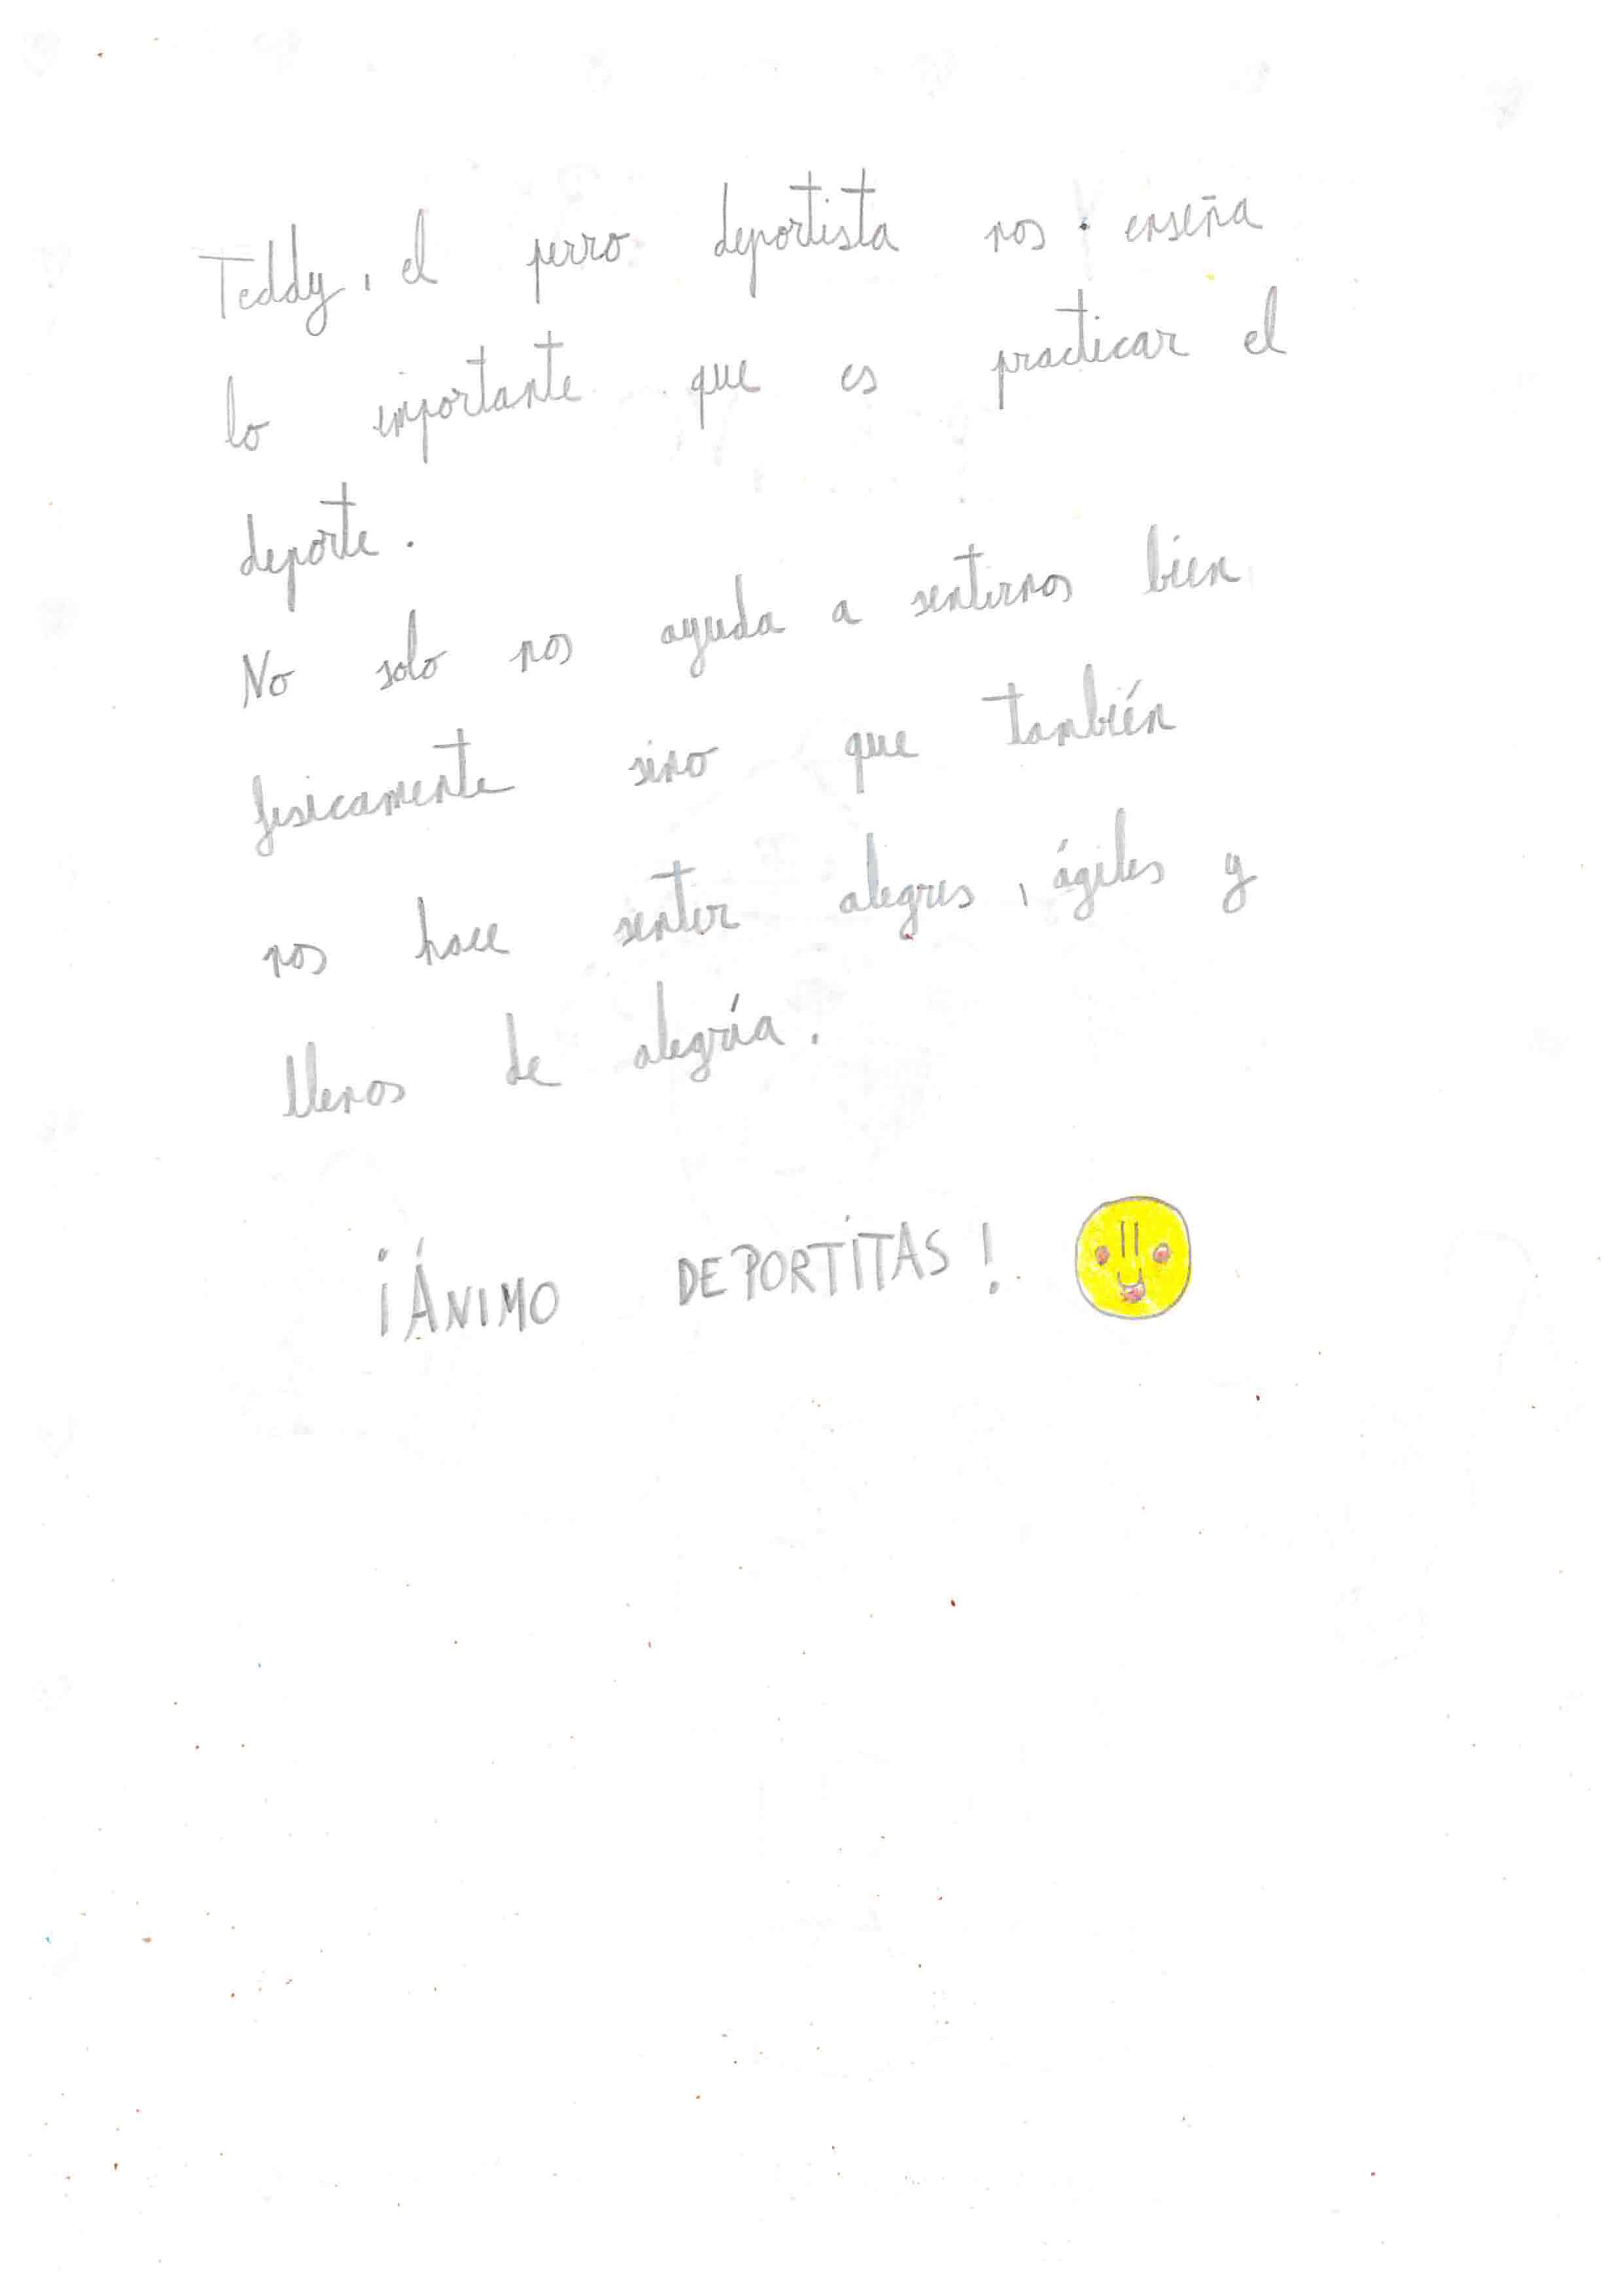 Teddy, el perro deportista nos enseña
lo importante que es practicar el
deporte.
No solo nos ayuda a sentirnos bien
fisicamente sino que también
nos hace sentir alegres, ágiles y
llenos de alegría.
¡ÁNIMO DEPORTITAS!